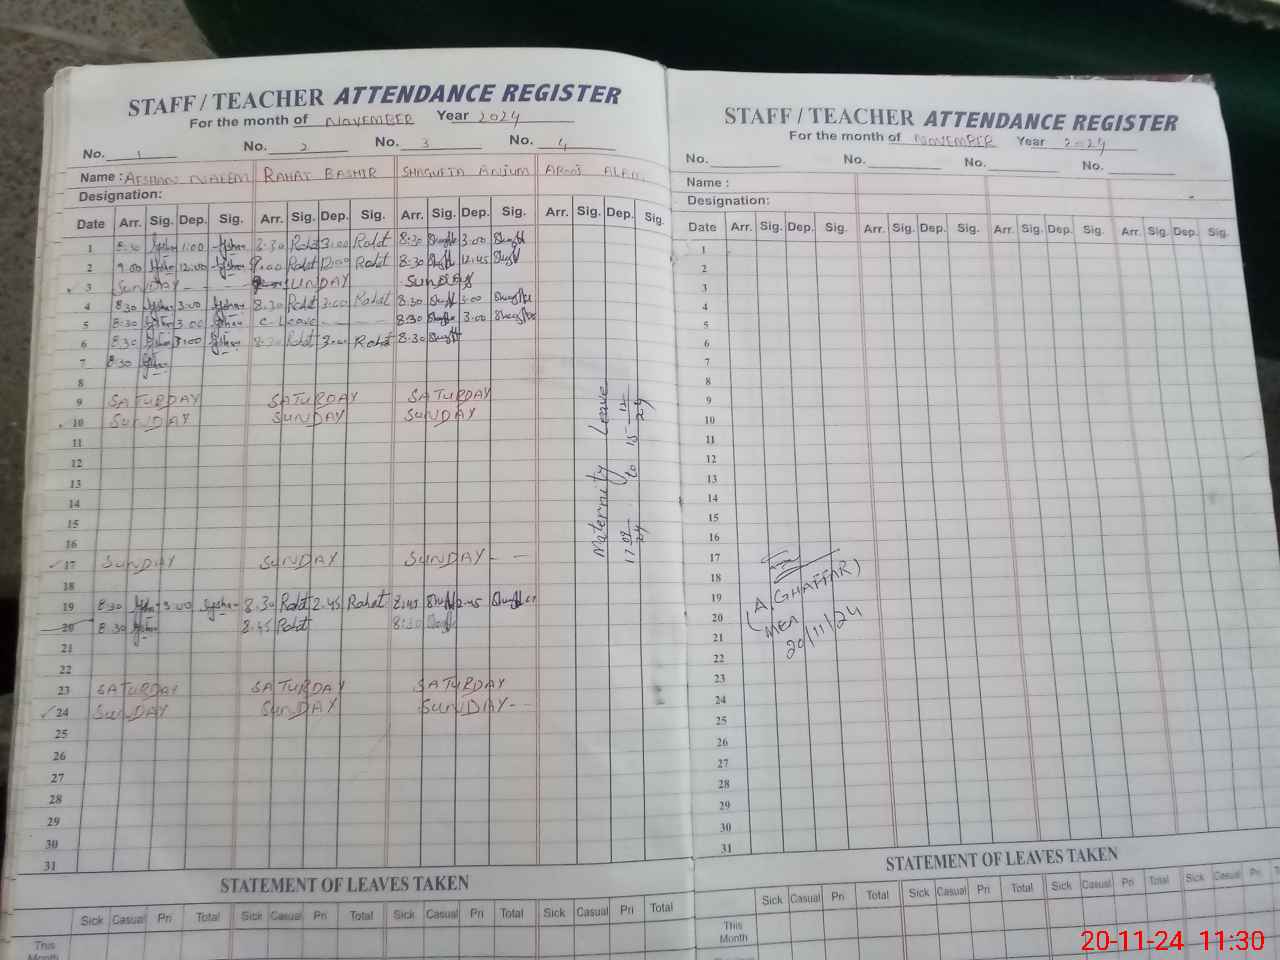 STAFF / TEACHER ATTENDANCE REGISTER
For the month of NOVEMBER Year 2024
No. 1 No. 2 No. 3 No. 4
Name : AFSHAN NAEEM RAHAT BASHIR SHAGUFTA ANJUM AROOJ
Designation:
Date Arr. Sig. Dep. Sig. Arr. Sig. Dep. Sig. Arr. Sig. Dep. Sig. Arr. Sig. Dep. Sig.
1 8:30 1:00 8.30 Rahat 3:00 Rahat 8:30 3.00
2 9.00 12:00 9.00 Rahat 12:00 Rahat 8:30 12.45
3 SUNDAY SUNDAY SUNDAY
4 8:30 3:00 8.30 Rahat 3:00 Rahat 8:30 3:00
5 8:30 3.00 C Leave 8:30 3.00
6 8:30 3:00 8:30 Rahat Rahat 8:30
7 8:30
8
9 SATURDAY SATURDAY SATURDAY
10 SUNDAY SUNDAY SUNDAY
11
12
13
14
15
16
17 SUNDAY SUNDAY SUNDAY
18
19 8:30 3:00 8.30 Rahat 2.45 Rahat 8:45 2:45
20 8:30 8.45 Rahat 8:30
21
22
23 SATURDAY SATURDAY SATURDAY
24 SUNDAY SUNDAY SUNDAY
25
26
27
28
29
30
31
Maternity Leave
17/09/24 to 15/12/24
STATEMENT OF LEAVES TAKEN
Sick Casual Pri Total Sick Casual Pri Total Sick Casual Pri Total Sick Casual Pri Total
This
Month
STAFF / TEACHER ATTENDANCE REGISTER
For the month of NOVEMBER Year 2024
No. No. No. No.
Name :
Designation:
Date Arr. Sig. Dep. Sig. Arr. Sig. Dep. Sig. Arr. Sig. Dep. Sig. Arr. Sig. Dep. Sig.
1
2
3
4
5
6
7
8
9
10
11
12
13
14
15
16
17
18
19
20
21
22
23
24
25
26
27
28
29
30
31
(A.GHAFFAR)
MEA
20/11/24
STATEMENT OF LEAVES TAKEN
Sick Casual Pri Total Sick Casual Pri Total Sick Casual Pri Total Sick Casual Pri
This
Month
20-11-24 11:30